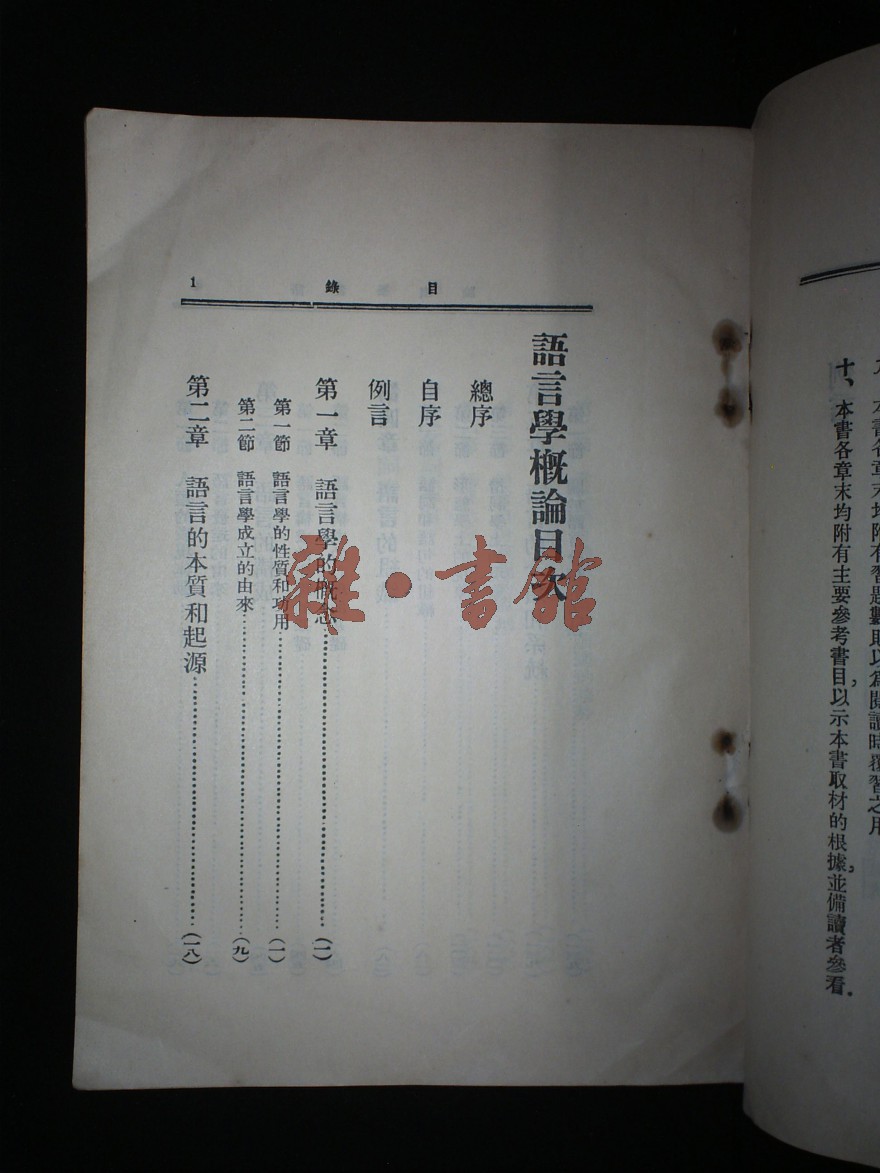 十、本書各章末均附有主要參考書目，以示本書取材的根據，並備讀者參看.
目錄
1
語言學概論目次
總序
自序
例言
第一章 語言學的概念……(一)
第一節 語言學的性質和功用……(一)
第二節 語言學成立的由來……(九)
第二章 語言的本質和起源……(一八)
雜·書館